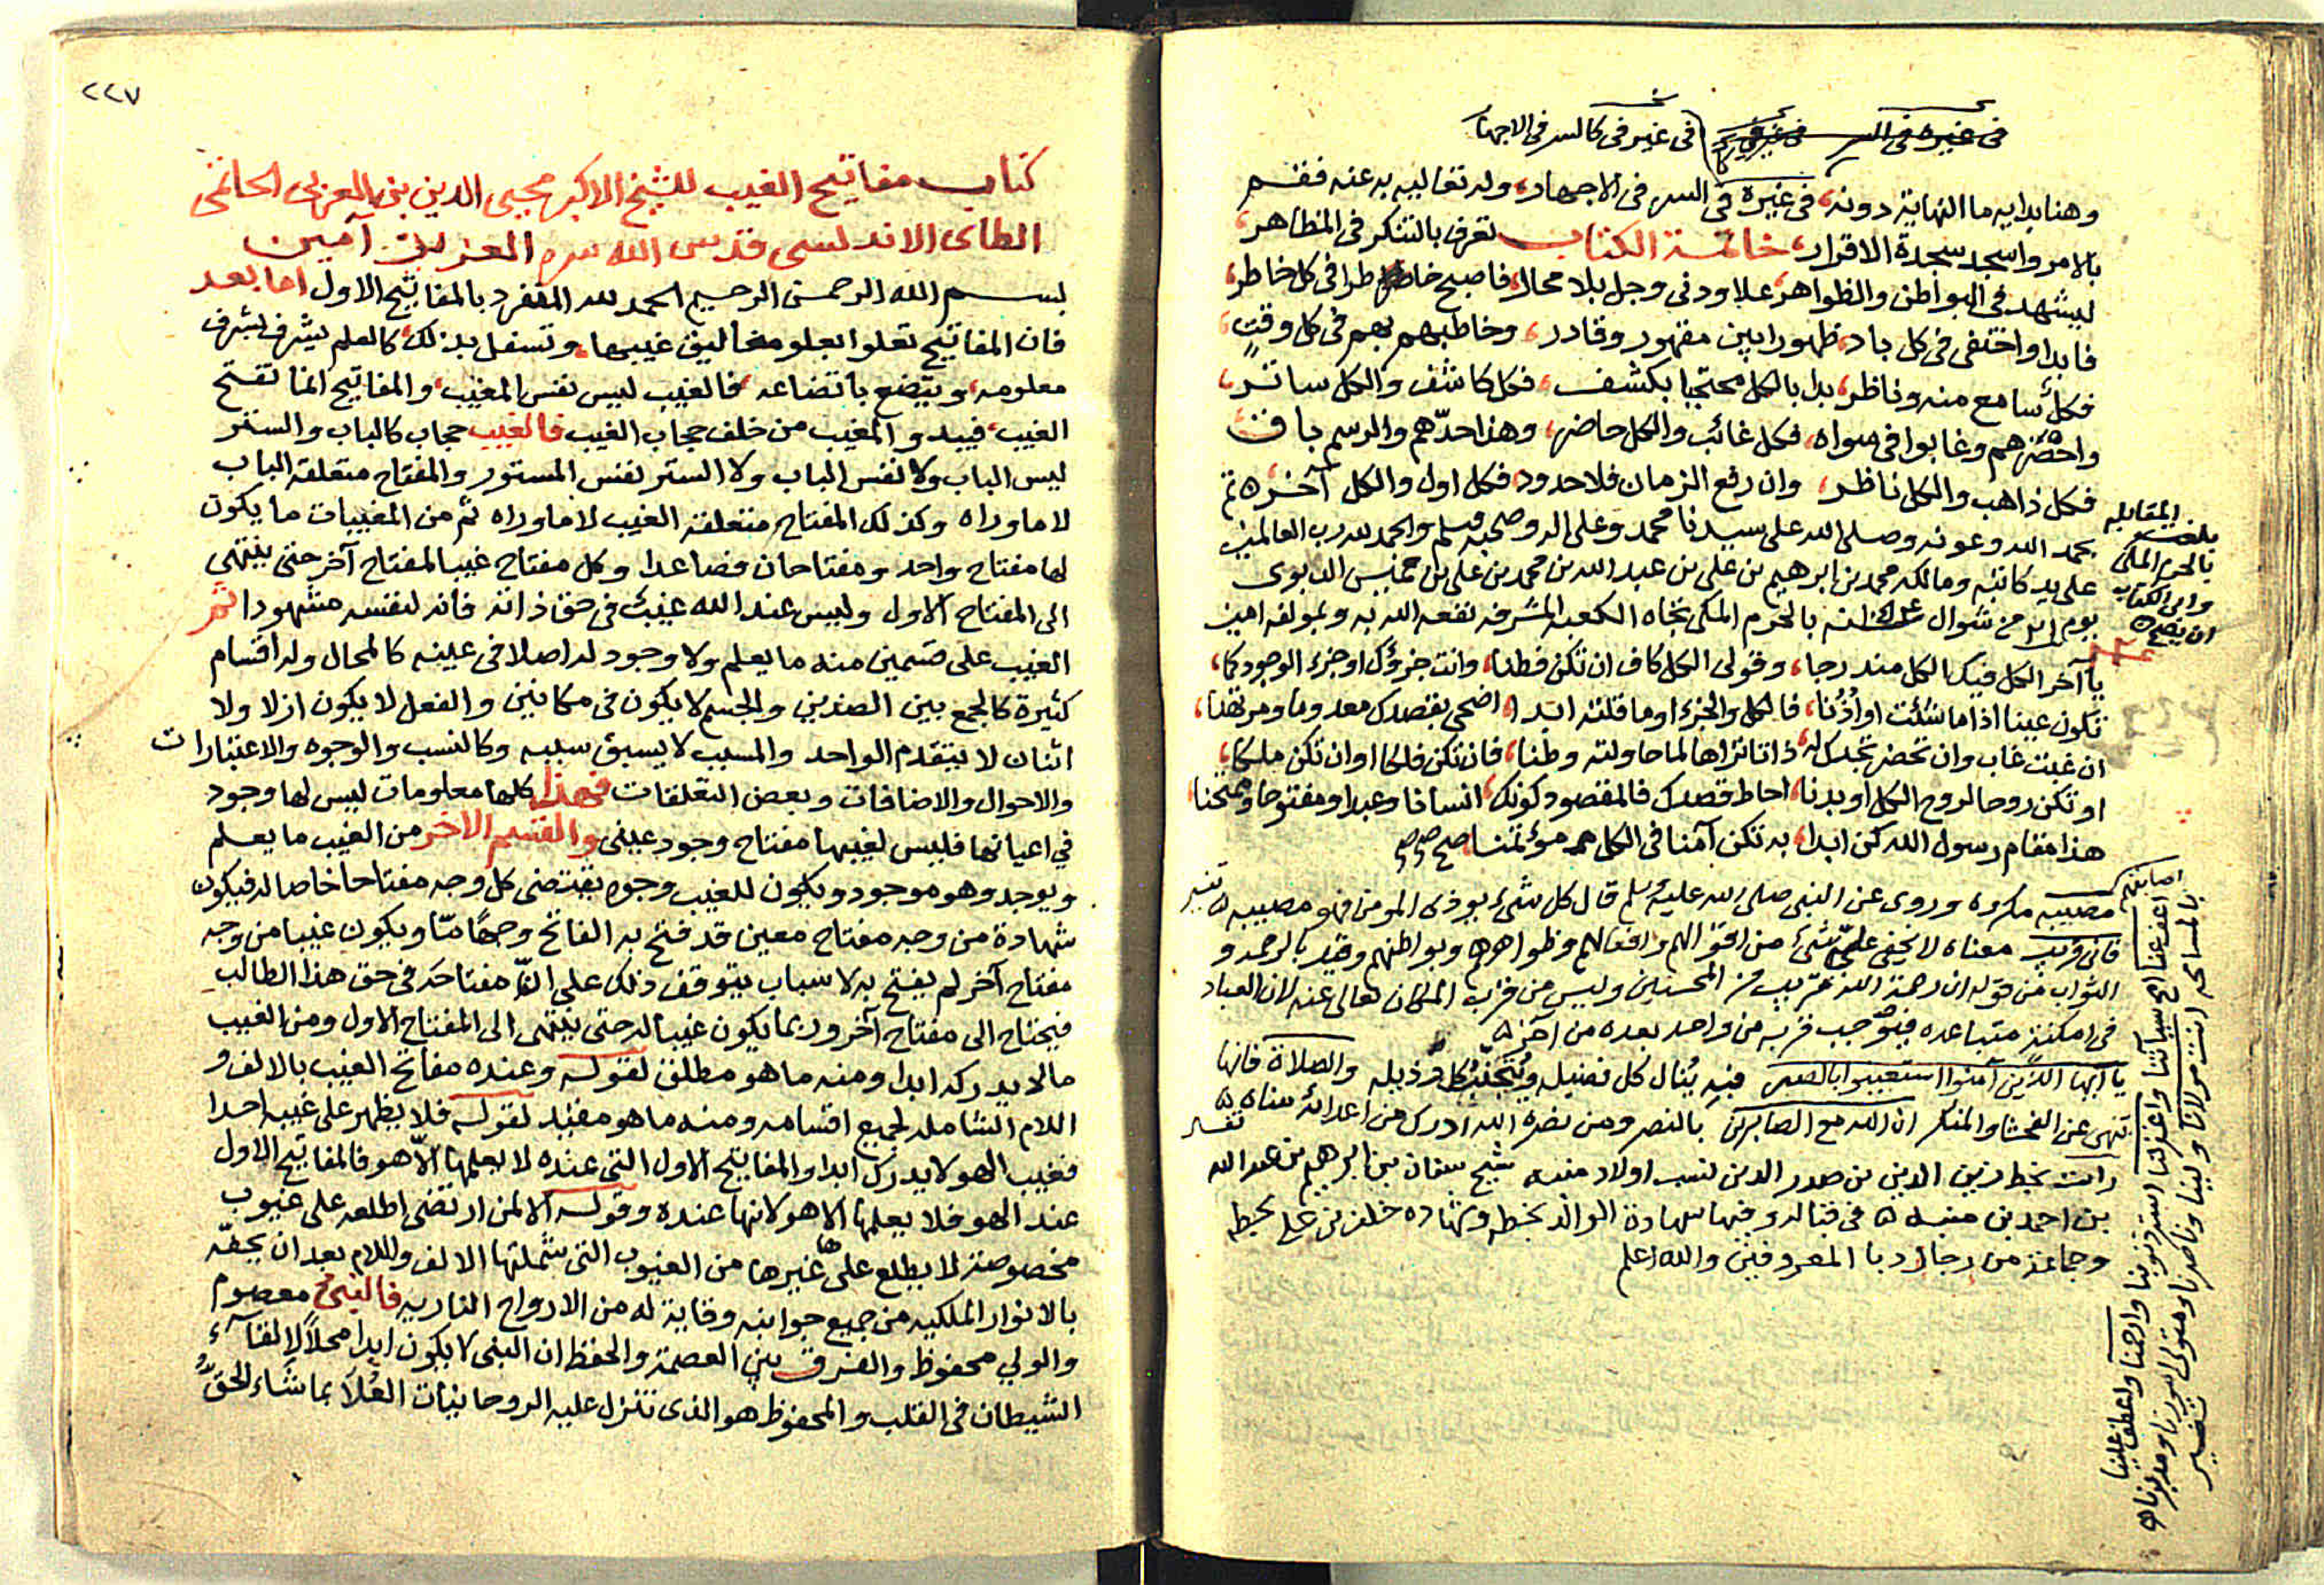 في غيره في السر في غيره في كا في غير في كالسر في الاجهار
وهنا بدايه ما النهاية دونه، في غيرة في السر في الاجهاد، وله تعاليه به عنه ففتسم
بالامر واسجد سجدة الاقرار، خاتمة الكتاب تعرف بالتنكر في المظاهر،
ليشهد في البواطن والظواهر، علا ودنى وجل بلا محال، فاصبح خاطرا في كل خاطر،
فابدا واختفى في كل باد، ظهورا بين مقهور وقادر، وخاطبهم بهم في كل وقت،
فكل سامع منه وناظر، بدا بالكل محتجبا بكشف، فكل كاشف والكل ساتر،
واحضرهم وغابوا في سواه، فكل غائب والكل حاضر، وهذا حدهم والرسم باق
فكل ذاهب والكل ناظر، وان رفع الزمان فلا حدود، فكل اول والكل آخر ٥ تم
بحمد الله وعونه وصلى الله على سيدنا محمد وعلى اله وصحبه وسلم والحمد لله رب العالمين
على يد كاتبه ومالكه محمد بن ابرهيم بن علي بن عبد الله بن محمد بن علي بن
يوم من شوال بالحرم المكي تجاه الكعبه المشرفه نفعه الله به وبمولفه امين
بلغت المقابله
بالحرم المكي
وابى الكتاب
ان يصح ٥
يا آخر الكل فيك الكل مندرجا، وقولي الكل كاف ان تكن فطنا، وانت جزؤك او جزء الوجود كما،
تكون عينا اذا ما شئت او اُذُنا، فالكل والجزء او ما قلته ابدا، اضحى بقصدك معدوما ومرتهنا،
ان غبت غاب وان تحضر تجدك له، ذاتا تراها لما حاولته وطنا، فان تكن فلكا او ان تكن ملكا،
او تكن روحا لروح الكل او بدنا، احاط قصدك فالمقصود كونك، انسانا وعبدا ومفتوحا وممتحنا
هذا مقام رسول الله كن ابدا، به تكن آمنا في الكل مؤتمنا صح
مصيبه مكروه وروى عن النبي صلى الله عليه وسلم قال كل شيء يوذى المومن فهو مصيبه ٥
فاني قريب معناه لا يخفى علي شيء من اقوالهم وافعالهم وظواهرهم وبواطنهم وقيل بالرحمه و
الثواب من قوله ان رحمة الله قريب من المحسنين وليس من قرب المكان تعالى عنه لان العباد
في امكنة متباعده فيوجب قربه من واحد بعده من آخر ٥
يا ايها الذين آمنوا استعينوا بالصبر فبه يُنال كل فضيله ويُتجنب كل رذيله والصلاة فانها
تنهى عن الفحشا والمنكر ان الله مع الصابرين بالنصر ومن نصره الله ادرك من اعدائه مناه ٥
رايت بخط زين الدين بن صدر الدين نسب اولاد منبه شيخ سنان بن ابرهيم بن عبد الله
بن احمد بن منبه ٥ في قباله وفيها شهادة الوالد بخطه وشهاده خلف بن علي بخطه
وجماعة من رجال دبا المعروفين والله اعلم
اعف عنا امح سيآتنا واغفر لنا استر ذنوبنا وارحمنا واعطف علينا
بالمسامحه انت مولانا ولينا وناصرنا ومتولى امورنا ومدبرنا ٥
تفسير
٢٢٧
كتاب مفاتيح الغيب للشيخ الاكبر محيى الدين بن العربى الحاتمى
الطائى الاندلسى قدس الله سره العزيز آمين
بسم الله الرحمن الرحيم الحمد لله المنفرد بالمفاتيح الاول اما بعد
فان المفاتيح تعلوا بعلو مغاليق غيبها، وتسفل بذلك، كالعلم يشرف بشرف
معلومه، ويتضع باتضاعه، فالغيب ليس نفس المغيب، والمفاتيح انما تفتح
الغيب، فيبدو المغيب من خلف حجاب الغيب فالغيب حجاب كالباب والستر
ليس الباب ولا نفس الباب ولا الستر نفس المستور والمفتاح متعلقه الباب
لا ما وراه وكذلك المفتاح متعلقه الغيب لا ما وراه ثم من المغيبات ما يكون
لها مفتاح واحد ومفتاحان فصاعدا وكل مفتاح غيب المفتاح آخر حتى ينتهى
الى المفتاح الاول وليس عند الله غيب في حق ذاته فانه لنفسه مشهودا ثم
الغيب على قسمين منه ما يعلم ولا وجود له اصلا في عينه كالمحال وله اقسام
كثيرة كالجمع بين الضدين والجسم لا يكون في مكانين والفعل لا يكون ازلا ولا
اثنان لا يتقدم الواحد والمسبب لا يسبق سببه وكالنسب والوجوه والاعتبارات
والاحوال والاضافات وبعض التعلقات فهذا كلها معلومات ليس لها وجود
في اعيانها فليس لغيبها مفتاح وجود عينى والقسم الاخر من الغيب ما يعلم
ويوجد وهو موجود ويكون للغيب وجوه يقتضى كل وجه مفتاحا خاصا له فيكون
شهادة من وجه مفتاح معين قد فتح به الفاتح وجهًا مّا ويكون غيبا من وجه
مفتاح آخر لم يفتح به لاسباب يتوقف ذلك على الفتح مفتاحه في حق هذا الطالب
فيحتاج الى مفتاح آخر وربما يكون غيبا له حتى ينتهى الى المفتاح الاول ومن الغيب
ما لا يدركه ابدا ومنه ما هو مطلق لقوله وعنده مفاتح الغيب بالالف و
اللام الشامله لجميع اقسامه ومنه ما هو مقيد لقوله فلا يظهر على غيبه احدا
فغيب الهو لا يدرك ابدا والمفاتيح الاول التي عنده لا يعلمها الّا هو فالمفاتيح الاول
عند الهو فلا يعلمها الا هو لانها عنده وقوله الا لمن ارتضى اطلعه على غيوب
مخصوصة لا يطلع على غيرها من الغيوب التي شملتها الالف واللام بعد ان يحفّه
بالانوار الملكيه من جميع جوانبه وقاية له من الارواح الناريه فالنبى معصوم
والولي محفوظ والفرق بين العصمة والحفظ ان النبى لا يكون ابدا محلاً لالقآء
الشيطان في القلب والمحفوظ هو الذى تنزل عليه الروحانيات العُلا بما شاء الحقُّ